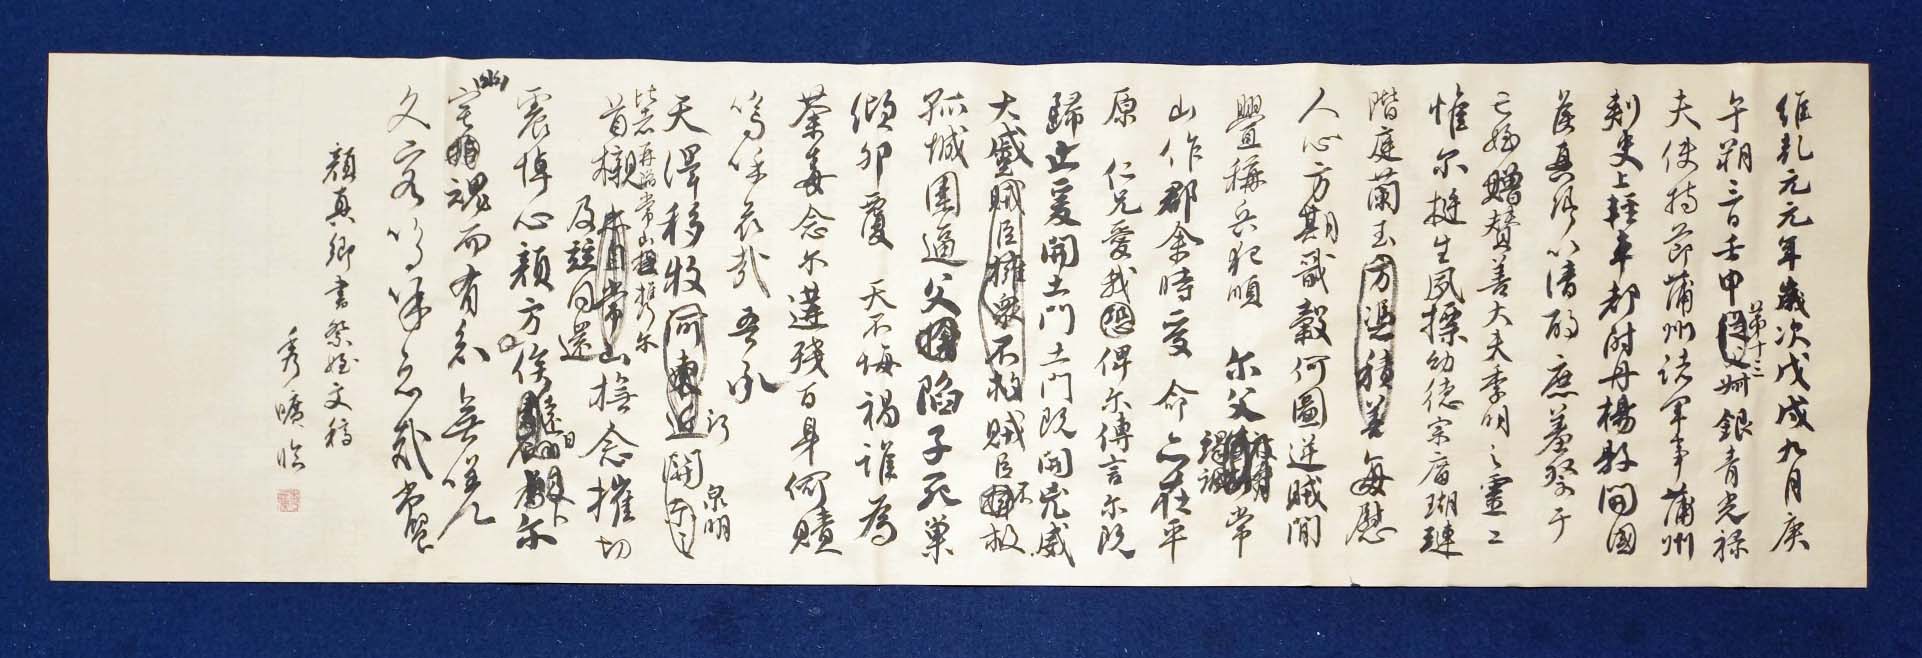 維乾元元年歲次戊戌九月庚
午朔三日壬申第十三從父叔銀青光祿
夫使持節蒲州諸軍事蒲州
刺史上輕車都尉丹楊縣開國
侯真卿以清酌庶羞祭于
亡姪贈贊善大夫季明之靈
惟爾挺生夙標幼德宗廟瑚璉
階庭蘭玉方憑積善每慰
人心方期戩穀何圖逆賊閒
釁稱兵犯順 爾父竭誠常
山作郡余時受命亦在平
原 仁兄愛我恐俾爾傳言爾既
歸止爰開土門土門既開兇威
大蹙賊臣擁眾不救賊臣不救
孤城圍逼父陷子死巢
傾卵覆 天不悔禍誰為
荼毒念爾遘殘百身何贖
嗚呼哀哉 吾承
天澤移牧河東近 泉明
比者再陷常山攜爾
首櫬及茲同還常山撫念摧切
震悼心顏方俟遠日卜爾
幽宅魂而有知無嗟久
客嗚呼哀哉尚饗
顏真卿書祭姪文稿
秀嚝臨